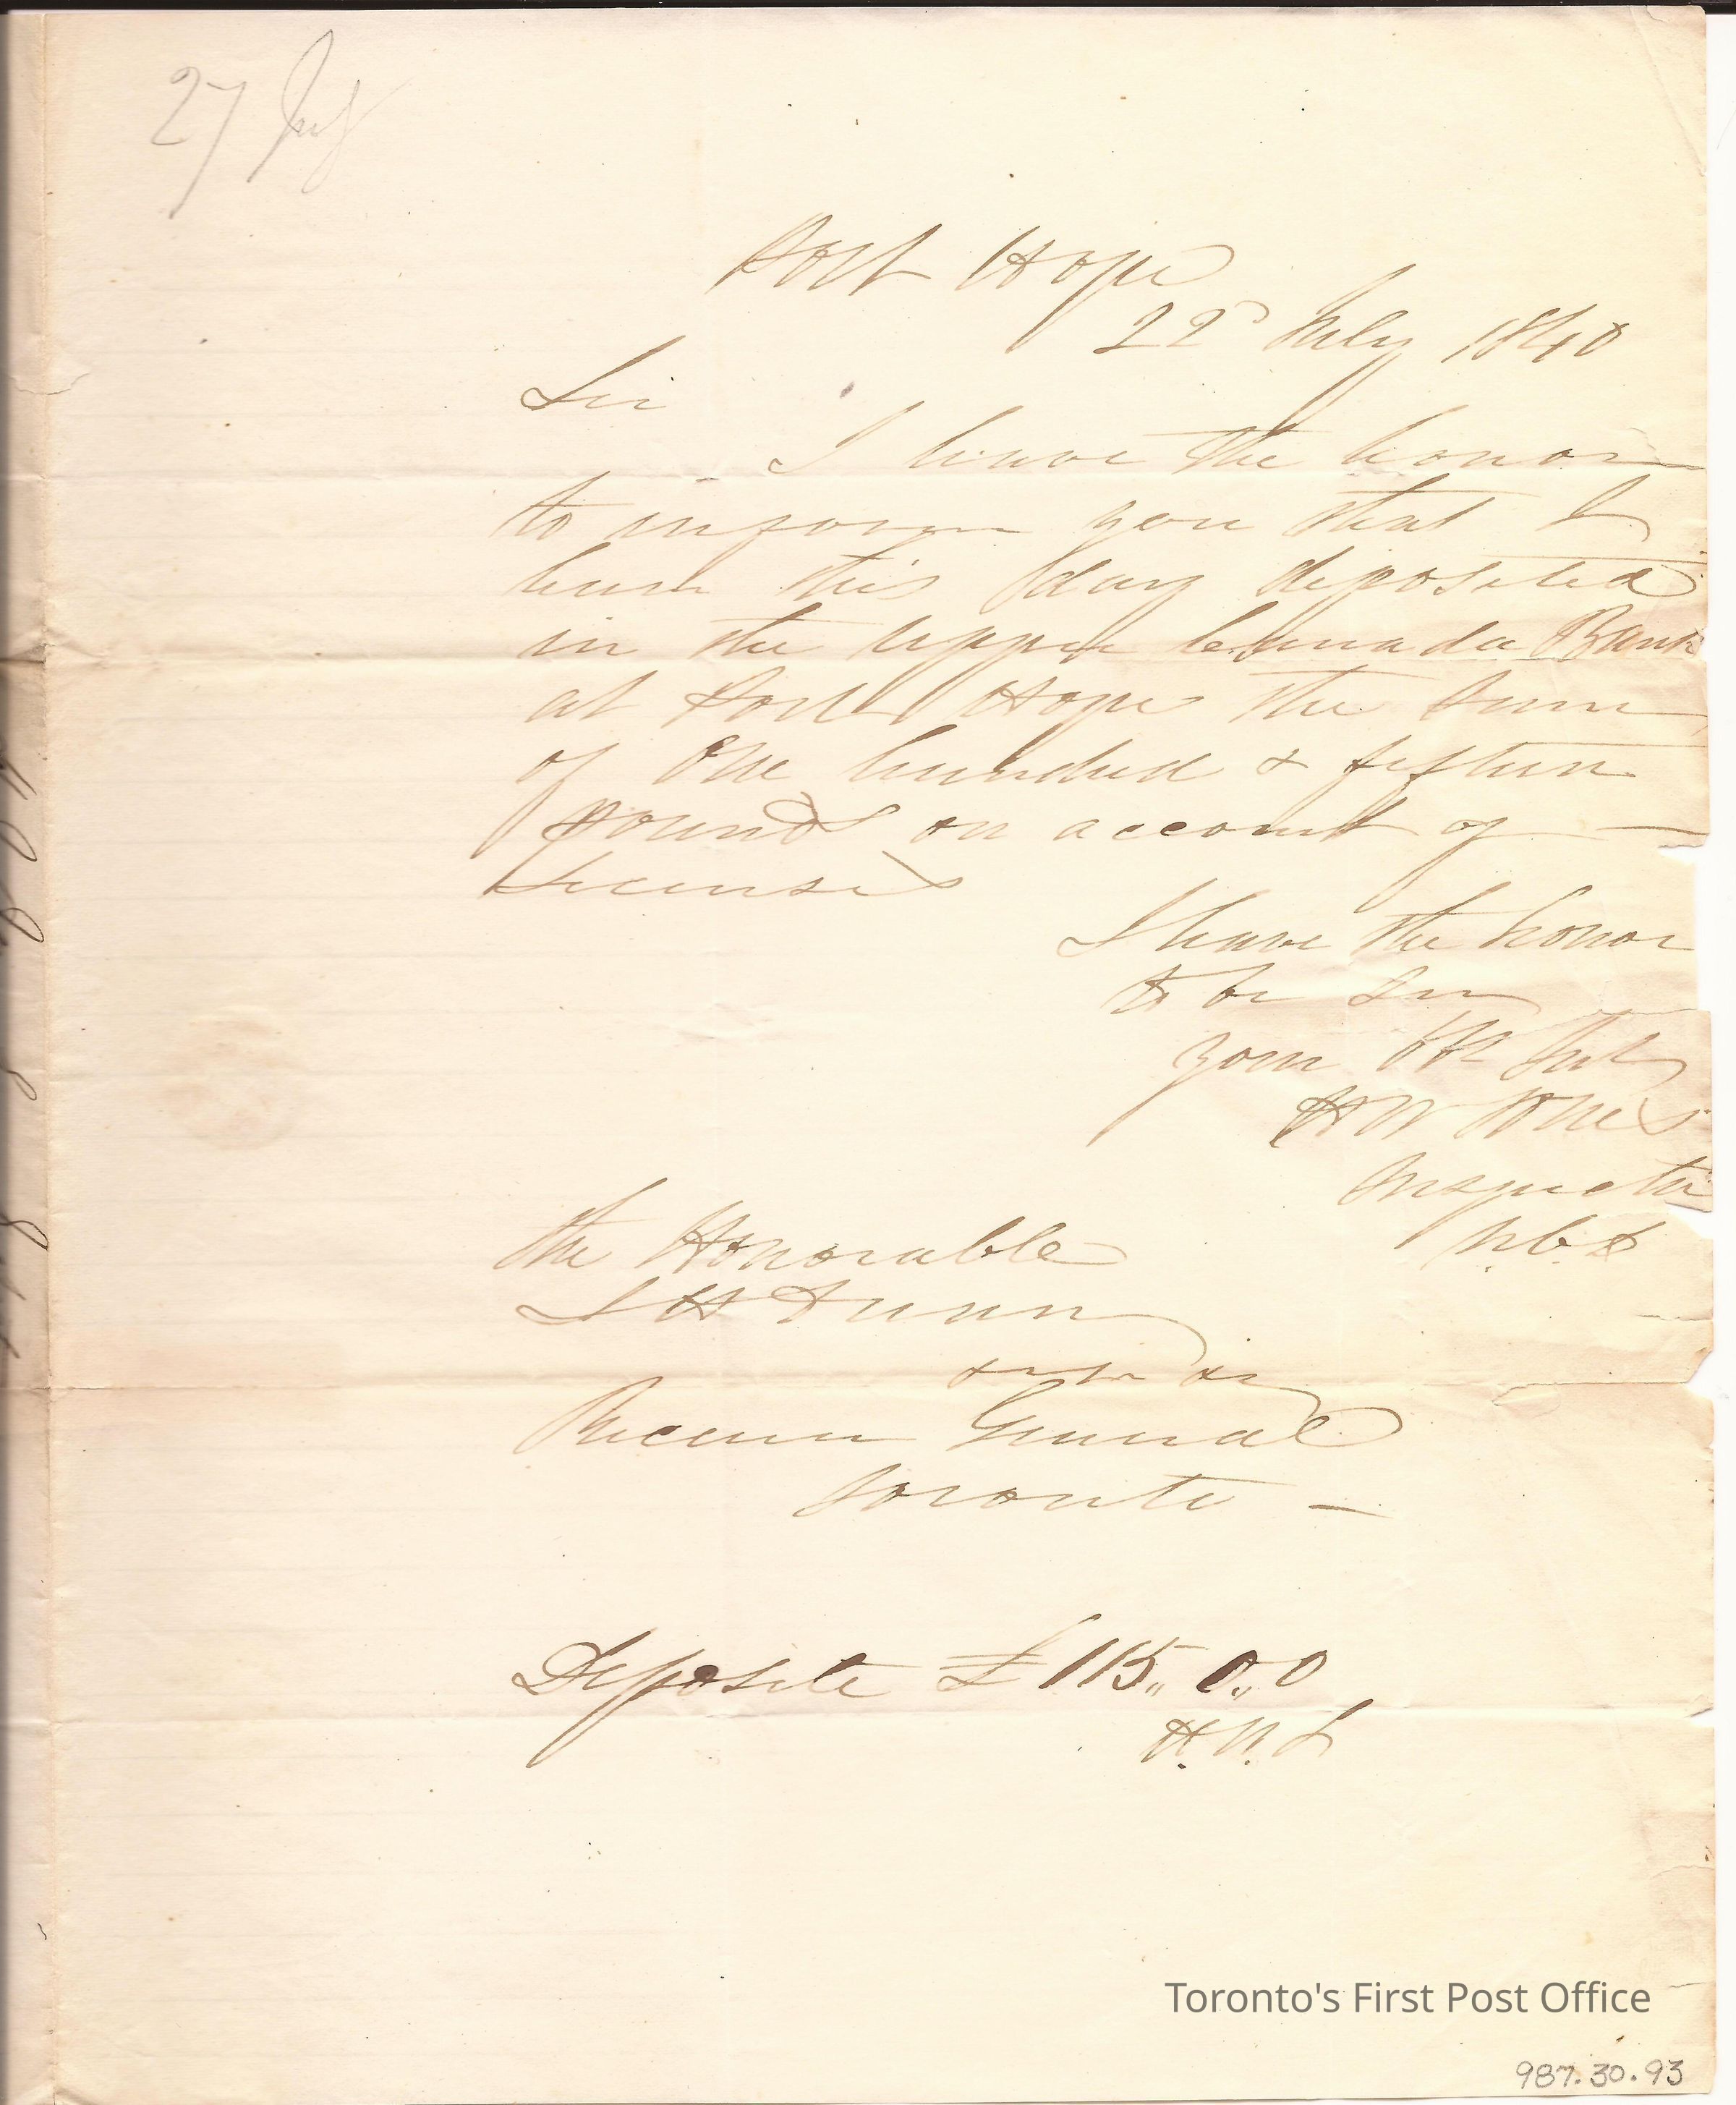 27 July
Port Hope
22d July 1840
Sir
I have the honor
to inform you that I
have this day deposited
in the Upper Canada Bank
at Port Hope the Sum
of One hundred & fifteen
pounds on account of —
Licenses
I have the honor
to be Sir
your Ob Sert
H W Jones
Inspector
N.C.D
The Honorable
J H Dunn
&c &c &c
Receiver General
Toronto —
Deposite £115,, 0,, 0
H.W.J
Toronto's First Post Office
987.30.93